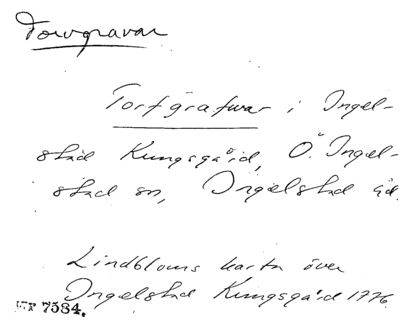 Torvgravar
Torfgrafwar i Ingel-
stad Kungsgård, Ö. Ingel-
stad sn, Ingelstad hd.
Lindbloms karta över
Ingelstad Kungsgård 1776.
7584.